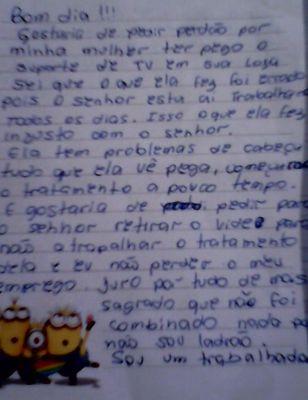 Bom dia !!!
Gostaria de pedir perdão por
minha mulher ter pego o
suporte de TV em sua loja
Sei que o que ela fez foi errado
pois o senhor esta ai Trabalhan
Todos os dias. Isso o que ela fez
injusto com o senhor.
Ela tem problemas de cabeça
tudo que ela vê pega, começamos
o tratamento a pouco tempo.
E gostaria de pedir para
o senhor retirar o video para
não atrapalhar o tratamento
dela e eu não perder o meu
emprego. Juro por tudo de mais
sagrado que não foi
combinado nada po
não sou ladrão.
Sou um trabalhado